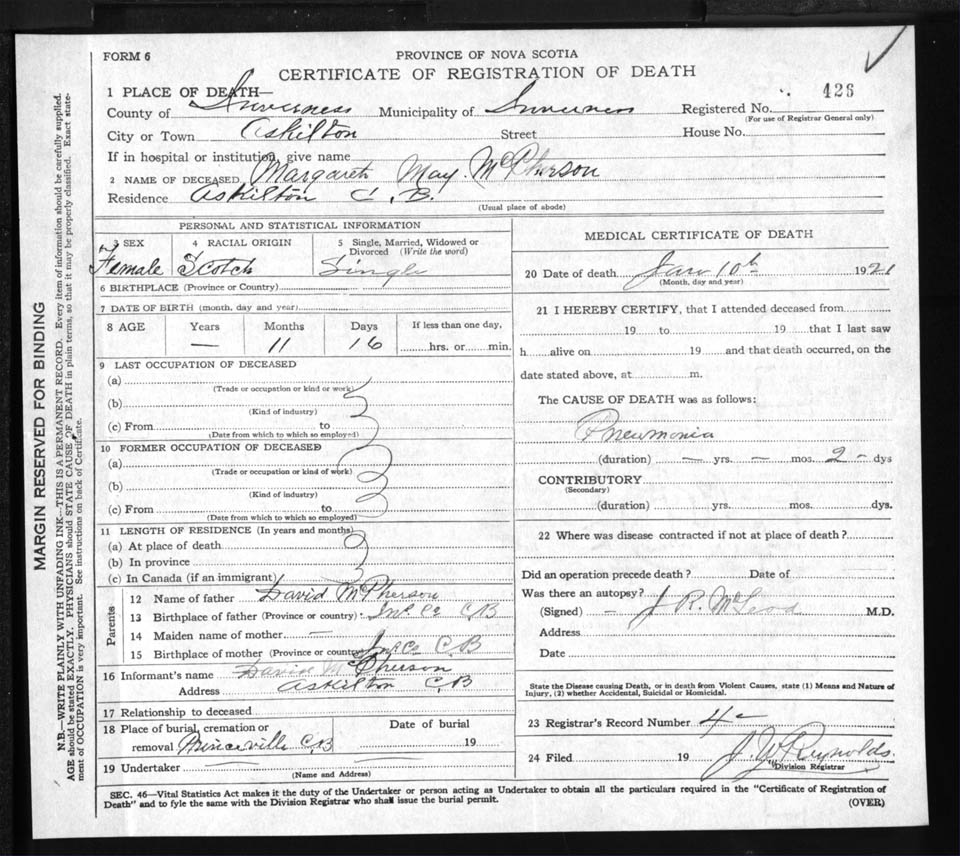 FORM 6
PROVINCE OF NOVA SCOTIA
CERTIFICATE OF REGISTRATION OF DEATH
1 PLACE OF DEATH—
426
County of Inverness Municipality of Inverness Registered No.
(For use of Registrar General only)
City or Town Askilton Street House No.
If in hospital or institution, give name
2 NAME OF DECEASED Margaret May McPherson
Residence Askilton C.B.
(Usual place of abode)
PERSONAL AND STATISTICAL INFORMATION
3 SEX 4 RACIAL ORIGIN 5 Single, Married, Widowed or Divorced (Write the word)
Female Scotch Single
6 BIRTHPLACE (Province or Country)
7 DATE OF BIRTH (month, day and year)
8 AGE Years Months Days If less than one day,
— 11 16 hrs. or min.
9 LAST OCCUPATION OF DECEASED
(a)
(Trade or occupation or kind or work)
(b)
(Kind of industry)
(c) From to
(Date from which to which so employed)
10 FORMER OCCUPATION OF DECEASED
(a)
(Trade or occupation or kind of work)
(b)
(Kind of industry)
(c) From to
(Date from which to which so employed)
11 LENGTH OF RESIDENCE (In years and months)
(a) At place of death
(b) In province
(c) In Canada (if an immigrant)
Parents
12 Name of father David McPherson
13 Birthplace of father (Province or country) Inv. Co C.B
14 Maiden name of mother —
15 Birthplace of mother (Province or country) Inv. Co C.B
16 Informant's name David McPherson
Address Askilton C.B
17 Relationship to deceased
18 Place of burial, cremation or removal Princeville C.B Date of burial 19
19 Undertaker
(Name and Address)
MEDICAL CERTIFICATE OF DEATH
20 Date of death Jan 10th 1921
(Month, day and year)
21 I HEREBY CERTIFY, that I attended deceased from
19 to 19 that I last saw
h alive on 19 and that death occurred, on the
date stated above, at m.
The CAUSE OF DEATH was as follows:
Pneumonia
(duration) — yrs. — mos. 2 — dys
CONTRIBUTORY
(Secondary)
(duration) yrs. mos. dys.
22 Where was disease contracted if not at place of death?
Did an operation precede death? Date of
Was there an autopsy?
(Signed) — J R. McLeod M.D.
Address
Date
State the Disease causing Death, or in death from Violent Causes, state (1) Means and Nature of
Injury, (2) whether Accidental, Suicidal or Homicidal.
23 Registrar's Record Number 4
24 Filed 19 J. W. Reynolds.
Division Registrar
SEC. 46—Vital Statistics Act makes it the duty of the Undertaker or person acting as Undertaker to obtain all the particulars required in the "Certificate of Registration of
Death" and to fyle the same with the Division Registrar who shall issue the burial permit.
(OVER)
MARGIN RESERVED FOR BINDING
N.B.—WRITE PLAINLY WITH UNFADING INK—THIS IS A PERMANENT RECORD. Every item of information should be carefully supplied.
AGE should be stated EXACTLY. PHYSICIANS should STATE CAUSE OF DEATH in plain terms, so that it may be properly classified. Exact state-
ment of OCCUPATION is very important. See instructions on back of Certificate.